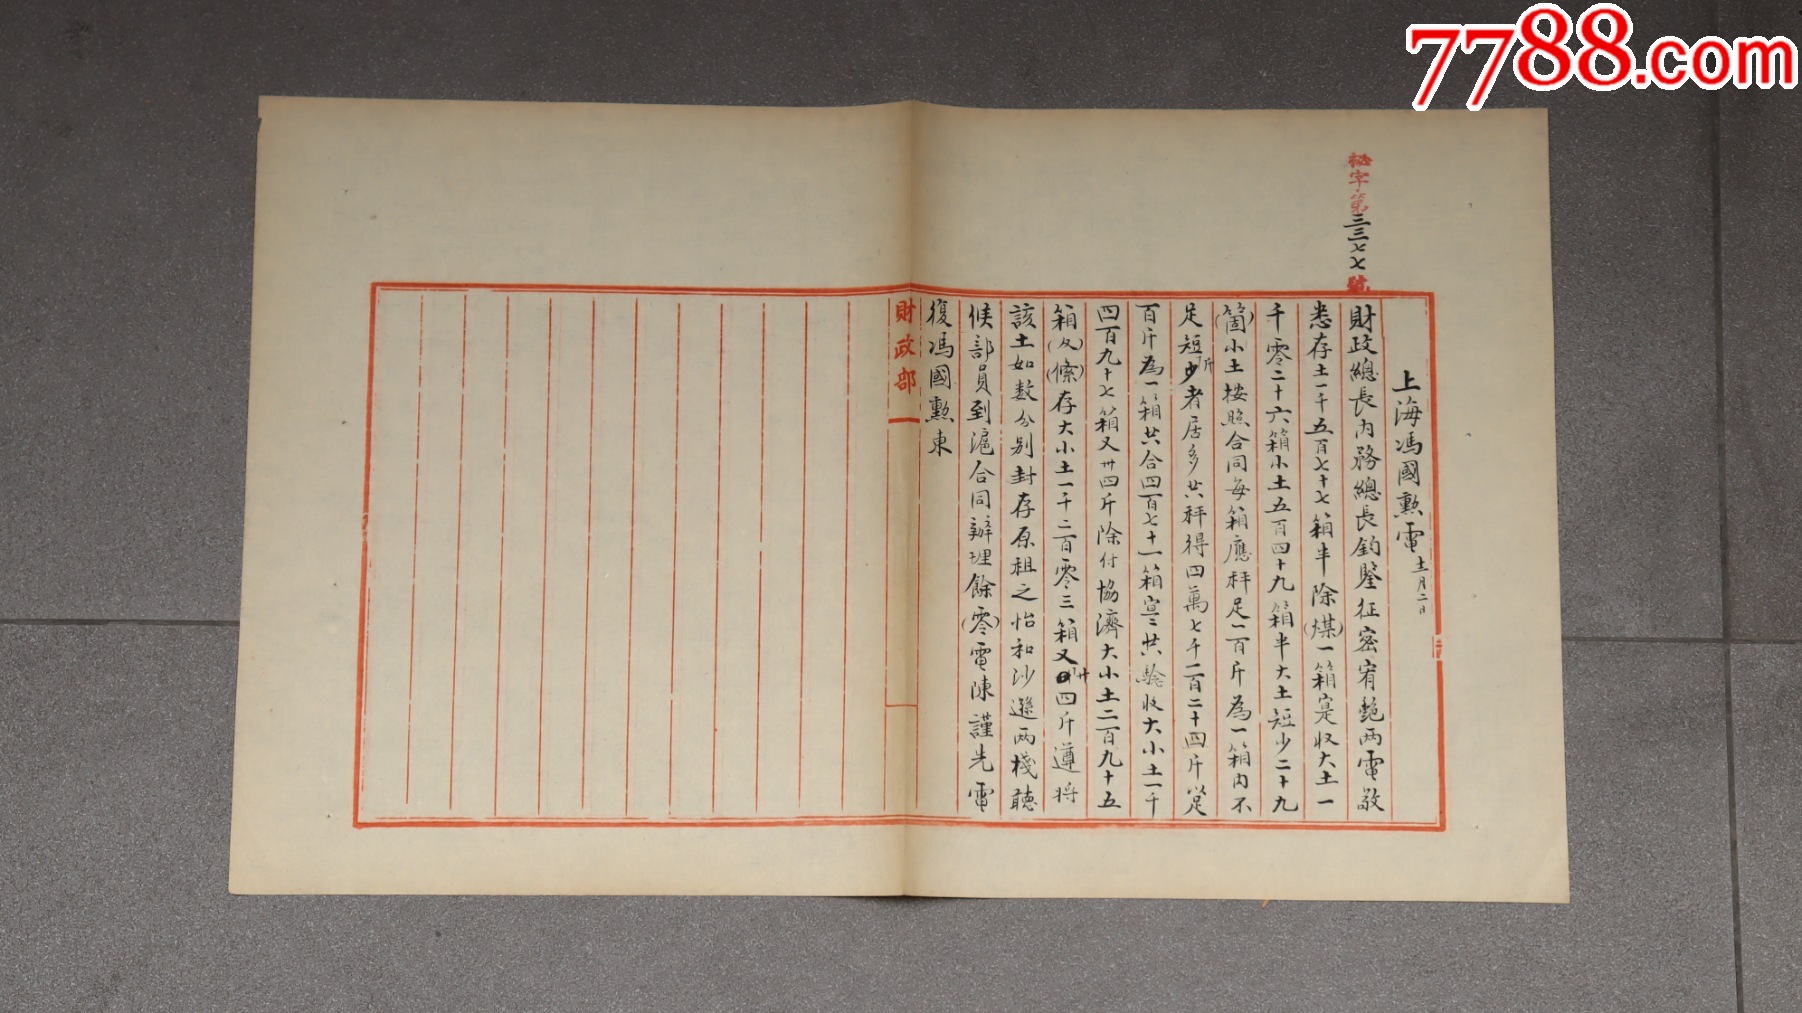 7788.com
秘字第三三七七號
上海馮國勲電 十二月二日
財政總長內務總長鈞鑒征密宥艷兩電敬
悉存土一千五百七十七箱半除(煤)一箱寔收大土一
千零二十六箱小土五百四十九箱半大土短少二十九
(箇)小土按照合同每箱應秤足一百斤為一箱內不
足短斤少者居多共秤得四萬七千一百二十四斤從
百斤為一箱共合四百七十一箱寔共驗收大小土一千
四百九十七箱又卅四斤除付協濟大小土二百九十五
箱(及)(儌)存大小土一千二百零三箱又卅四斤遵將
該土如數分別封存原租之怡和沙遜兩棧聽
候部員到滬合同辦理餘(零)電陳謹先電
復馮國勲東
財政部